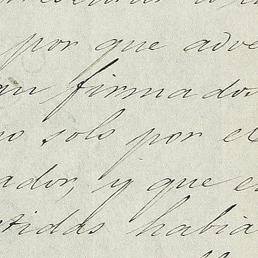 por que adve
an firmados
no solo por el
ador, y que e
tidas habia